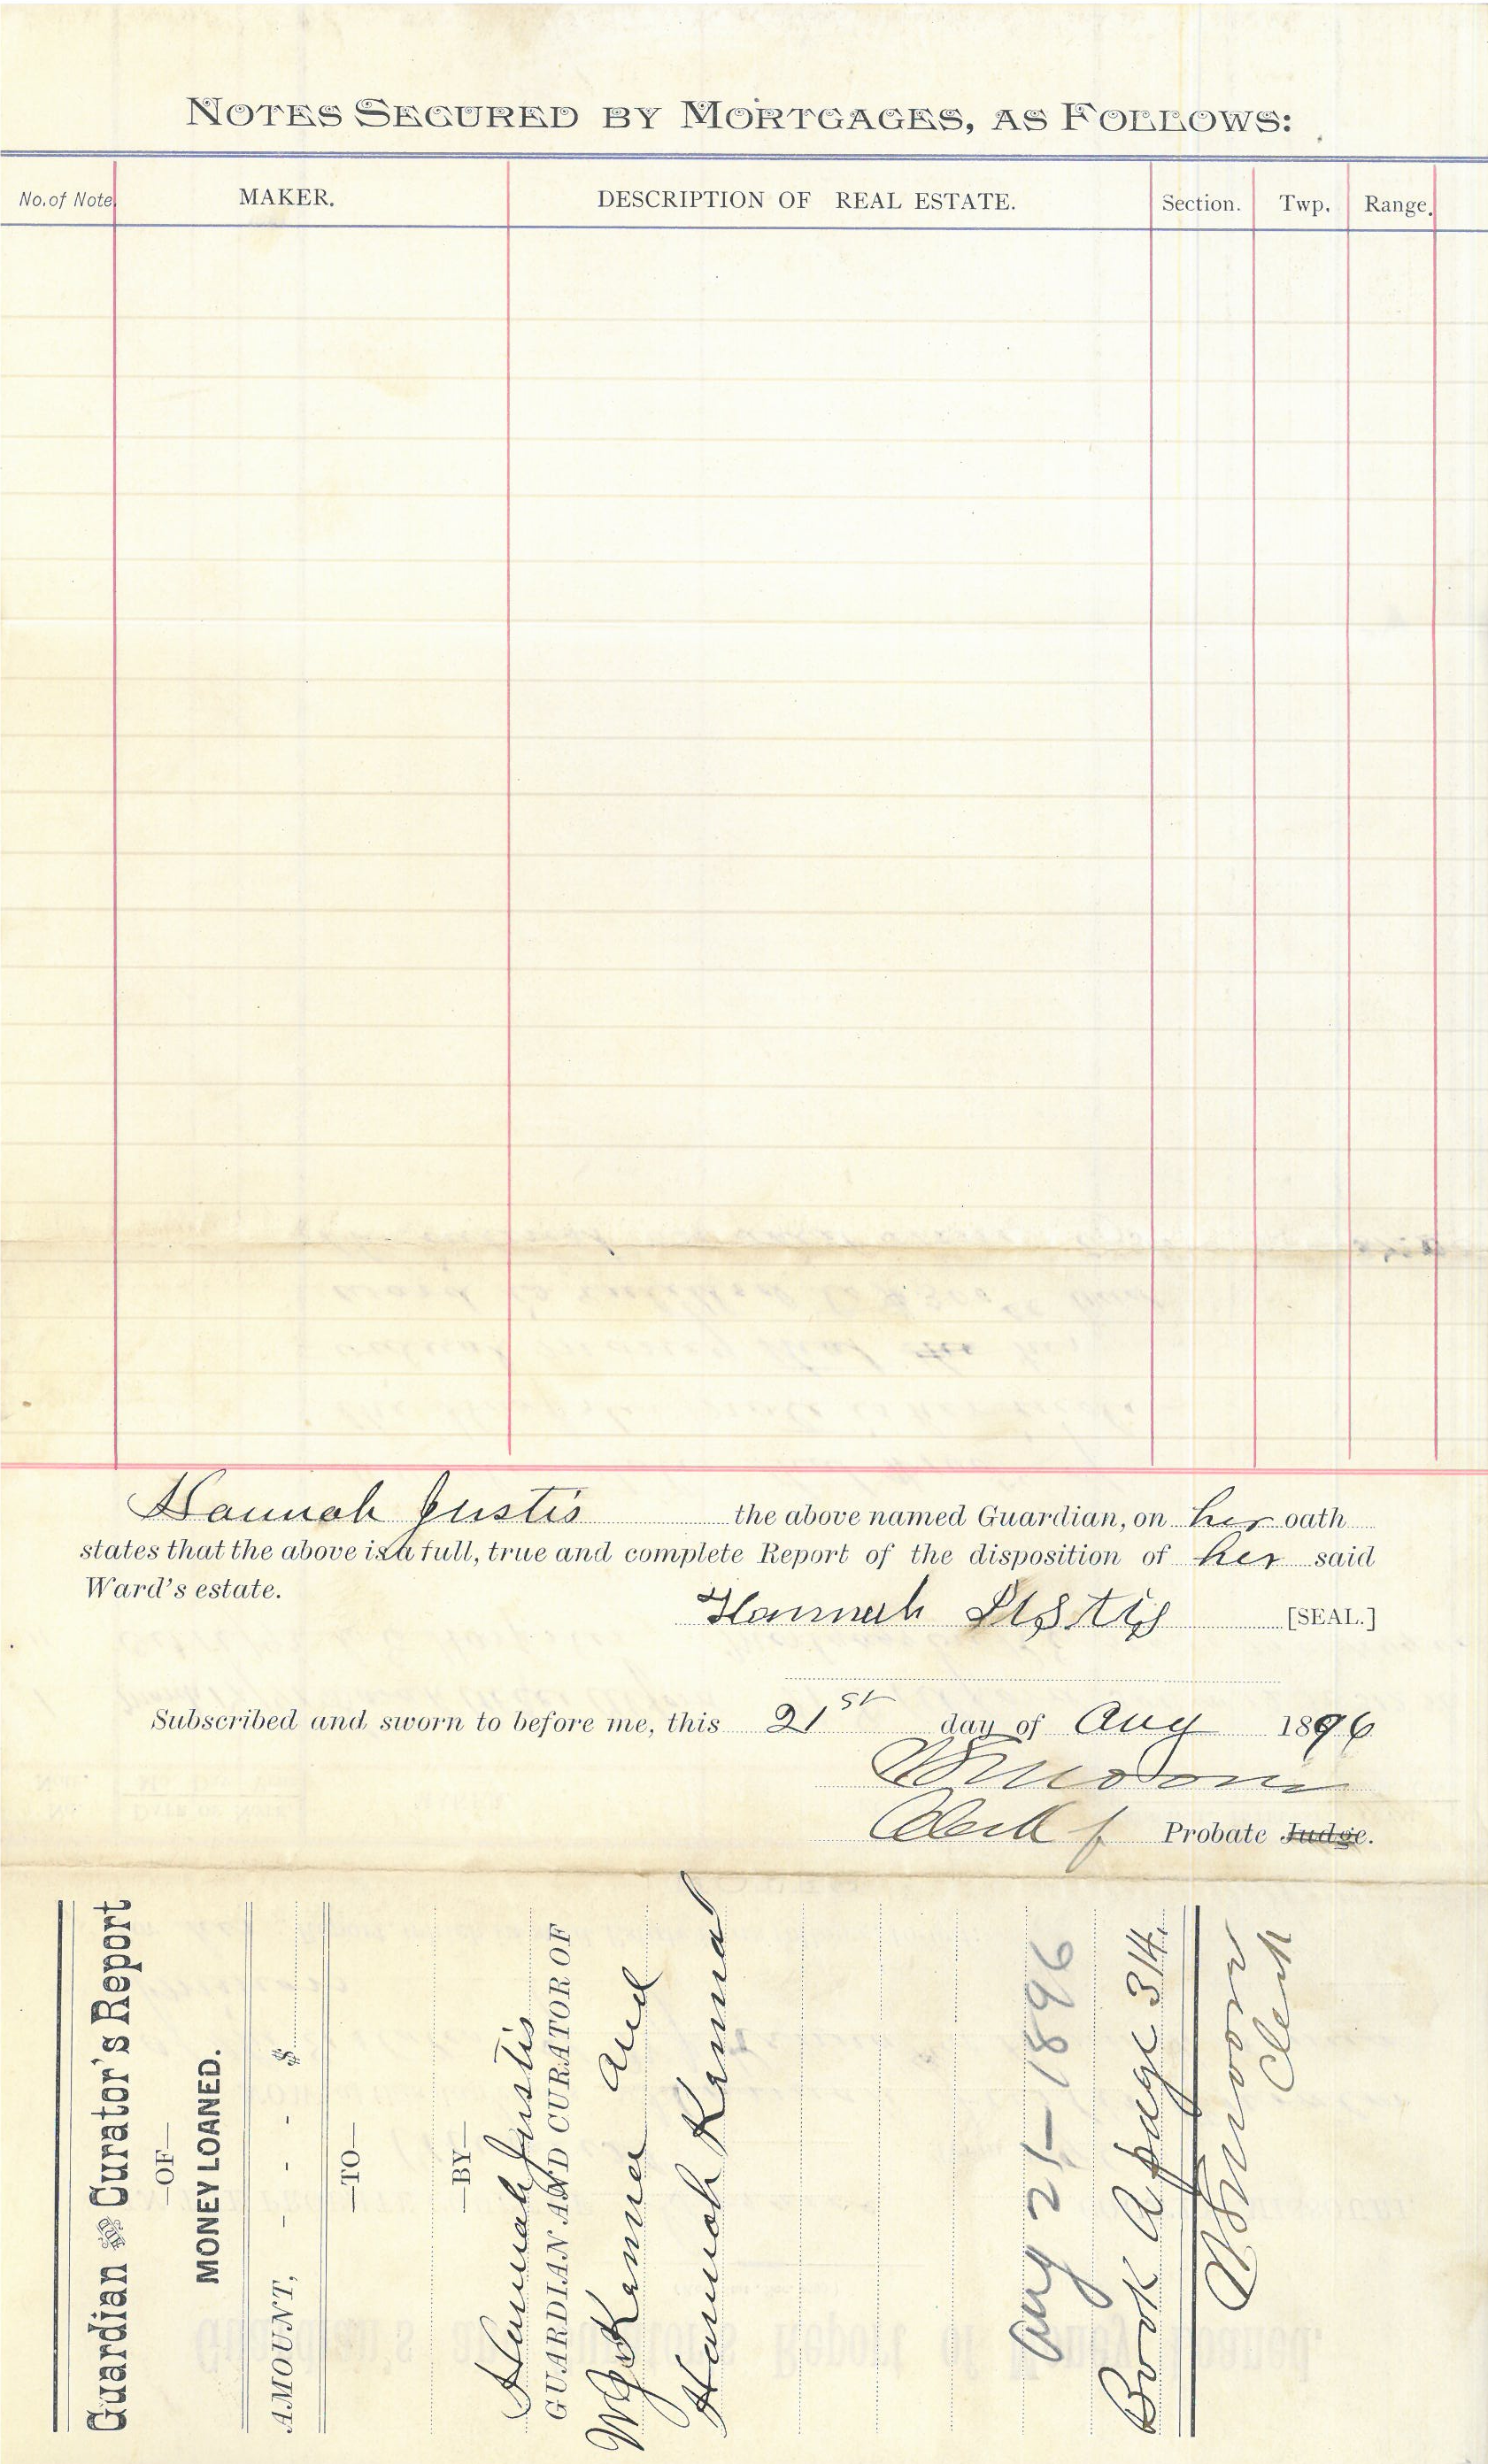 NOTES SECURED BY MORTGAGES, AS FOLLOWS:
No. of Note MAKER. DESCRIPTION OF REAL ESTATE. Section. Twp. Range.
Hannah Justis the above named Guardian, on her oath
states that the above is a full, true and complete Report of the disposition of her said
Ward's estate.
Hannah Justis [SEAL.]
Subscribed and sworn to before me, this 21st day of Aug 1896
Clerk of Probate Judge.
Guardian & Curator's Report
—OF—
MONEY LOANED.
AMOUNT, - - - $
—TO—
—BY—
Hannah Justis
GUARDIAN AND CURATOR OF
W J Kanna and
Hannah Kanna
Aug 21-1896
Book A page 314.
Clerk